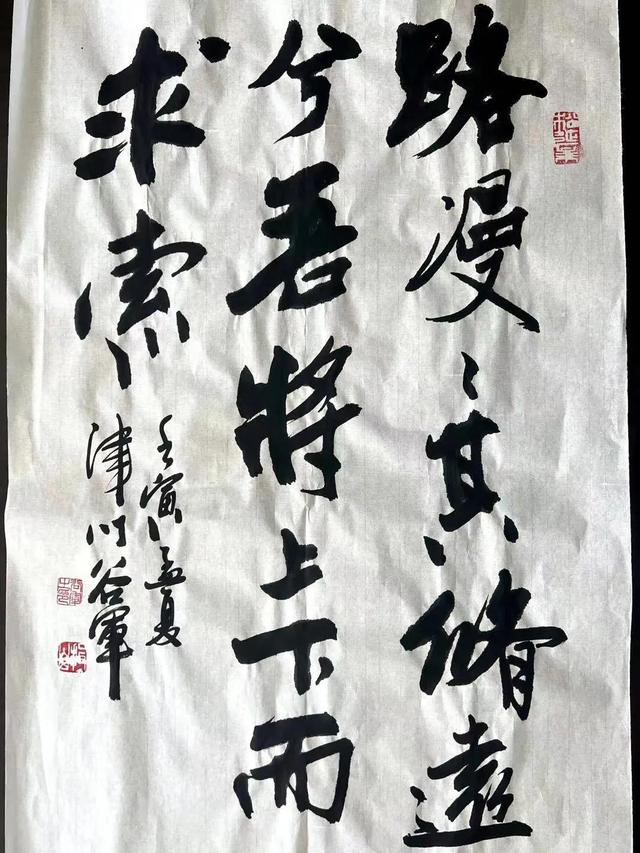 路漫〻其修遠
兮吾將上下而
求索
壬寅孟夏
津門谷軍